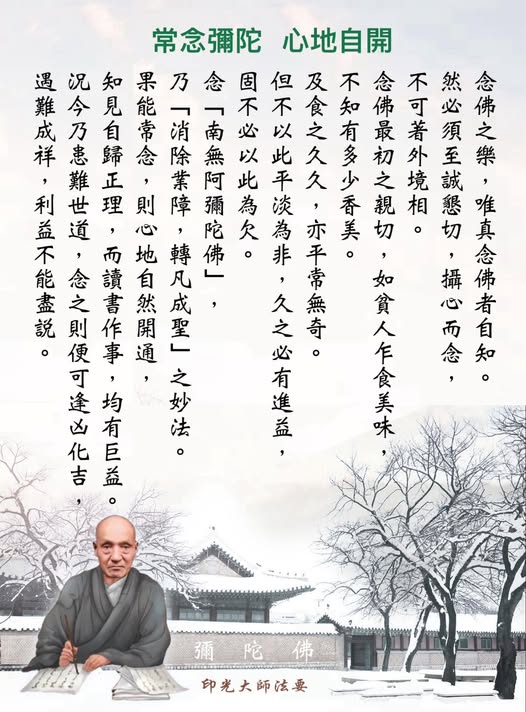 常念彌陀 心地自開
念佛之樂，唯真念佛者自知。
然必須至誠懇切，攝心而念，
不可著外境相。
念佛最初之親切，如貧人乍食美味，
不知有多少香美。
及食之久久，亦平常無奇。
但不以此平淡為非，久之必有進益，
固不必以此為欠。
念「南無阿彌陀佛」，
乃「消除業障，轉凡成聖」之妙法。
果能常念，則心地自然開通，
知見自歸正理，而讀書作事，均有巨益。
況今乃患難世道，念之則便可逢凶化吉，
遇難成祥，利益不能盡説。
彌陀佛
印光大師法要